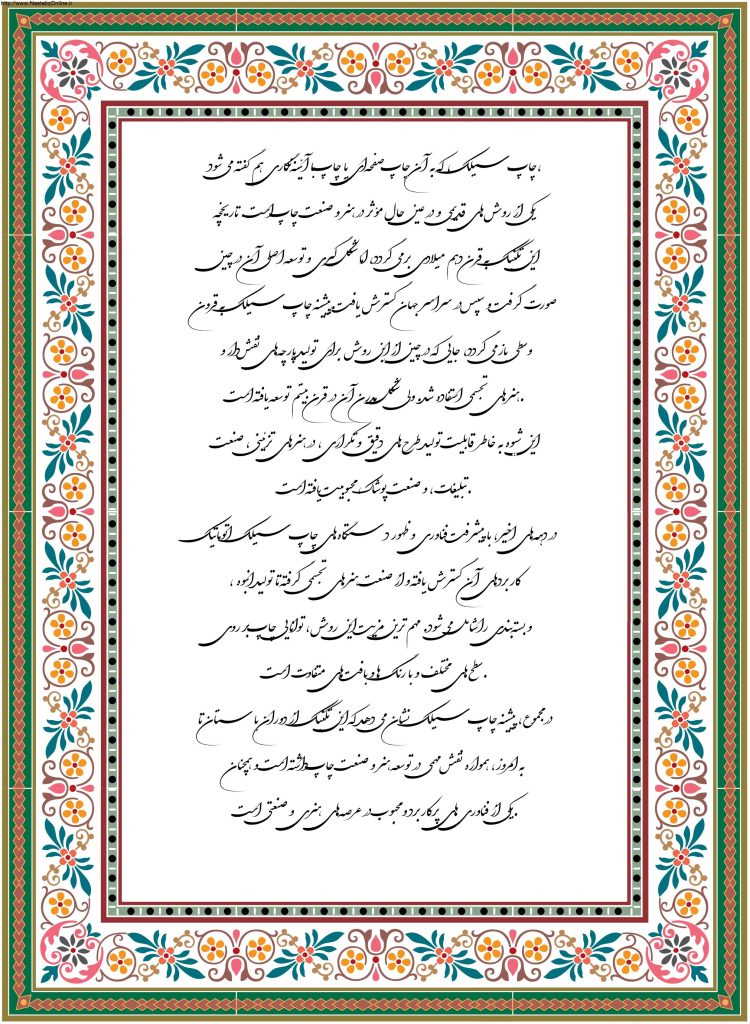 http://www.NastaliqOnline.ir
چاپ سیلک که به آن چاپ صفحه‌ای یا چاپ با آئینه‌نگاری هم گفته می شود،
یکی از روش های قدیمی و در عین حال مؤثر در هنر و صنعت چاپ است. تاریخچه
این تکنیک به قرن دهم میلادی برمی گردد، اما شکل گیری و توسعه اصلی آن در چین
صورت گرفت و سپس در سراسر جهان گسترش یافت. پیشینه چاپ سیلک به قرون
وسطی باز می گردد، جایی که در چین از این روش برای تولید پارچه های نقش دار و
هنرهای تجسمی استفاده شده ولی شکل مدرن آن در قرن بیستم توسعه یافته است.
این شیوه به خاطر قابلیت تولید طرح های دقیق و تکراری، در هنرهای تزئینی، صنعت
تبلیغات، و صنعت پوشاک محبوبیت یافته است.
در دهه های اخیر، با پیشرفت فناوری و ظهور دستگاه های چاپ سیلک اتوماتیک
کاربردهای آن گسترش یافته و از صنعت هنرهای تجسمی گرفته تا تولید انبوه،
و بسته بندی را شامل می شود. مهم ترین مزیت این روش، توانایی چاپ بر روی
سطح های مختلف و با رنگ ها و بافت های متفاوت است.
در مجموع، پیشینه چاپ سیلک نشان می دهد که این تکنیک از دوران باستان تا
به امروز، همواره نقش مهمی در توسعه هنر و صنعت چاپ داشته است و همچنان
یکی از فناوری های پرکاربرد و محبوب در عرصه های هنری و صنعتی است.